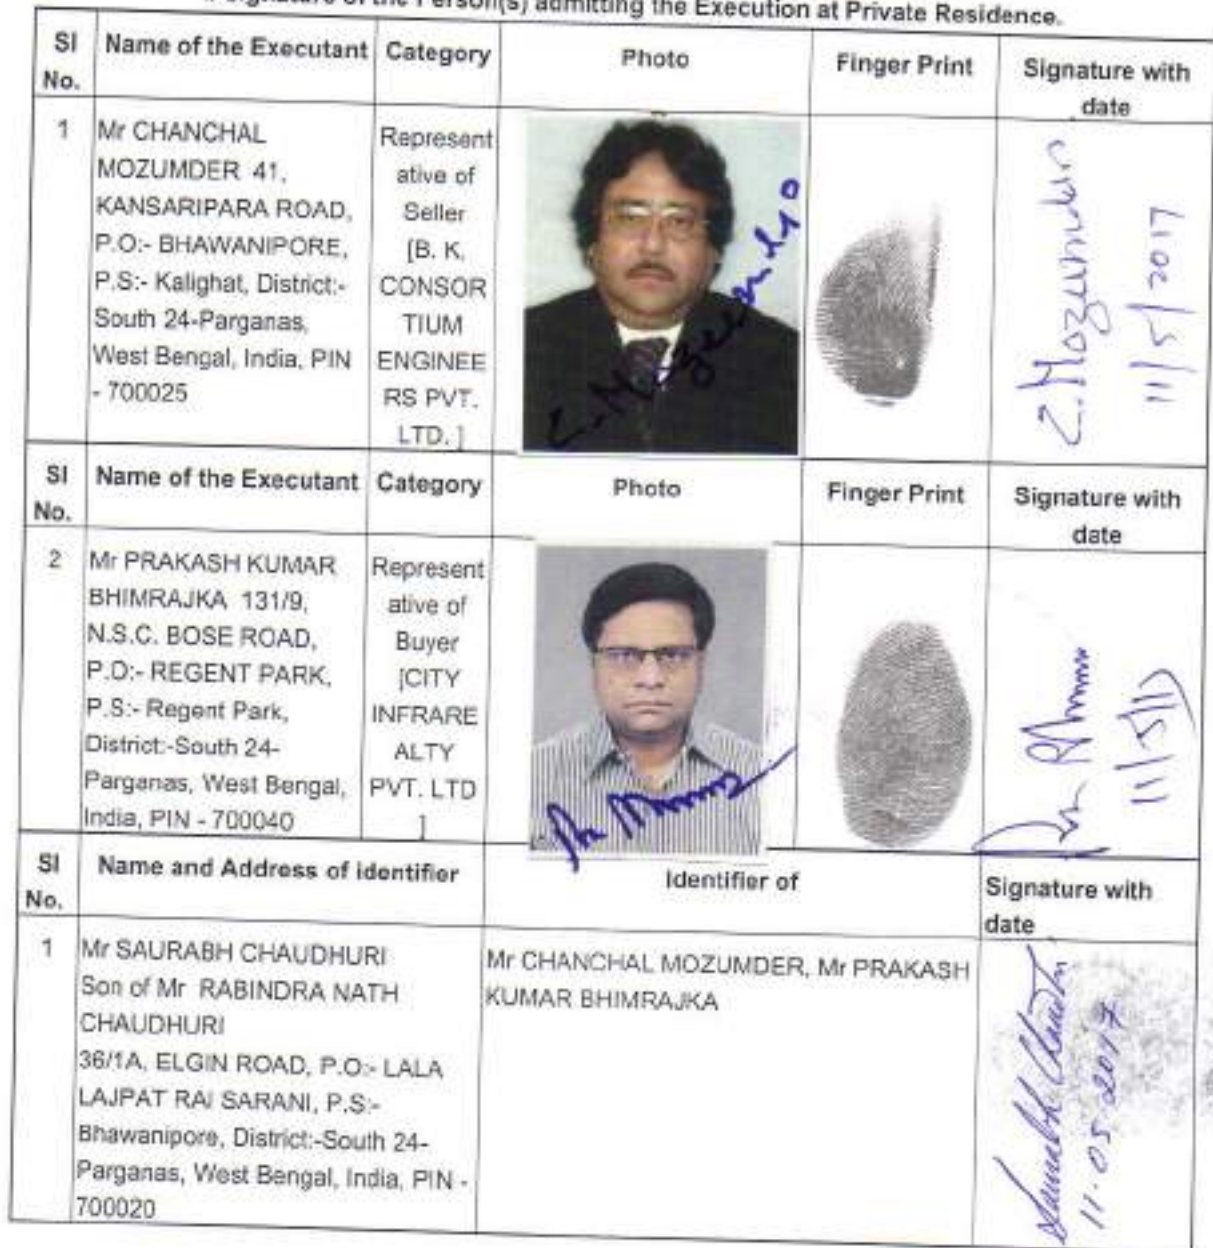 Signature of the Person(s) admitting the Execution at Private Residence.
Sl No. Name of the Executant Category Photo Finger Print Signature with date
1
Mr CHANCHAL
MOZUMDER 41,
KANSARIPARA ROAD,
P.O:- BHAWANIPORE,
P.S:- Kalighat, District:-
South 24-Parganas,
West Bengal, India, PIN
- 700025
Represent
ative of
Seller
[B. K.
CONSOR
TIUM
ENGINEE
RS PVT.
LTD. ]
C. Mozumder
11/5/2017
Sl No. Name of the Executant Category Photo Finger Print Signature with date
2
Mr PRAKASH KUMAR
BHIMRAJKA 131/9,
N.S.C. BOSE ROAD,
P.O:- REGENT PARK,
P.S:- Regent Park,
District:-South 24-
Parganas, West Bengal,
India, PIN - 700040
Represent
ative of
Buyer
[CITY
INFRARE
ALTY
PVT. LTD
]
11/5/17
Sl No. Name and Address of identifier Identifier of Signature with date
1
Mr SAURABH CHAUDHURI
Son of Mr RABINDRA NATH
CHAUDHURI
36/1A, ELGIN ROAD, P.O:- LALA
LAJPAT RAI SARANI, P.S:-
Bhawanipore, District:-South 24-
Parganas, West Bengal, India, PIN -
700020
Mr CHANCHAL MOZUMDER, Mr PRAKASH
KUMAR BHIMRAJKA
Saurabh Chaudhuri
11.05.2017